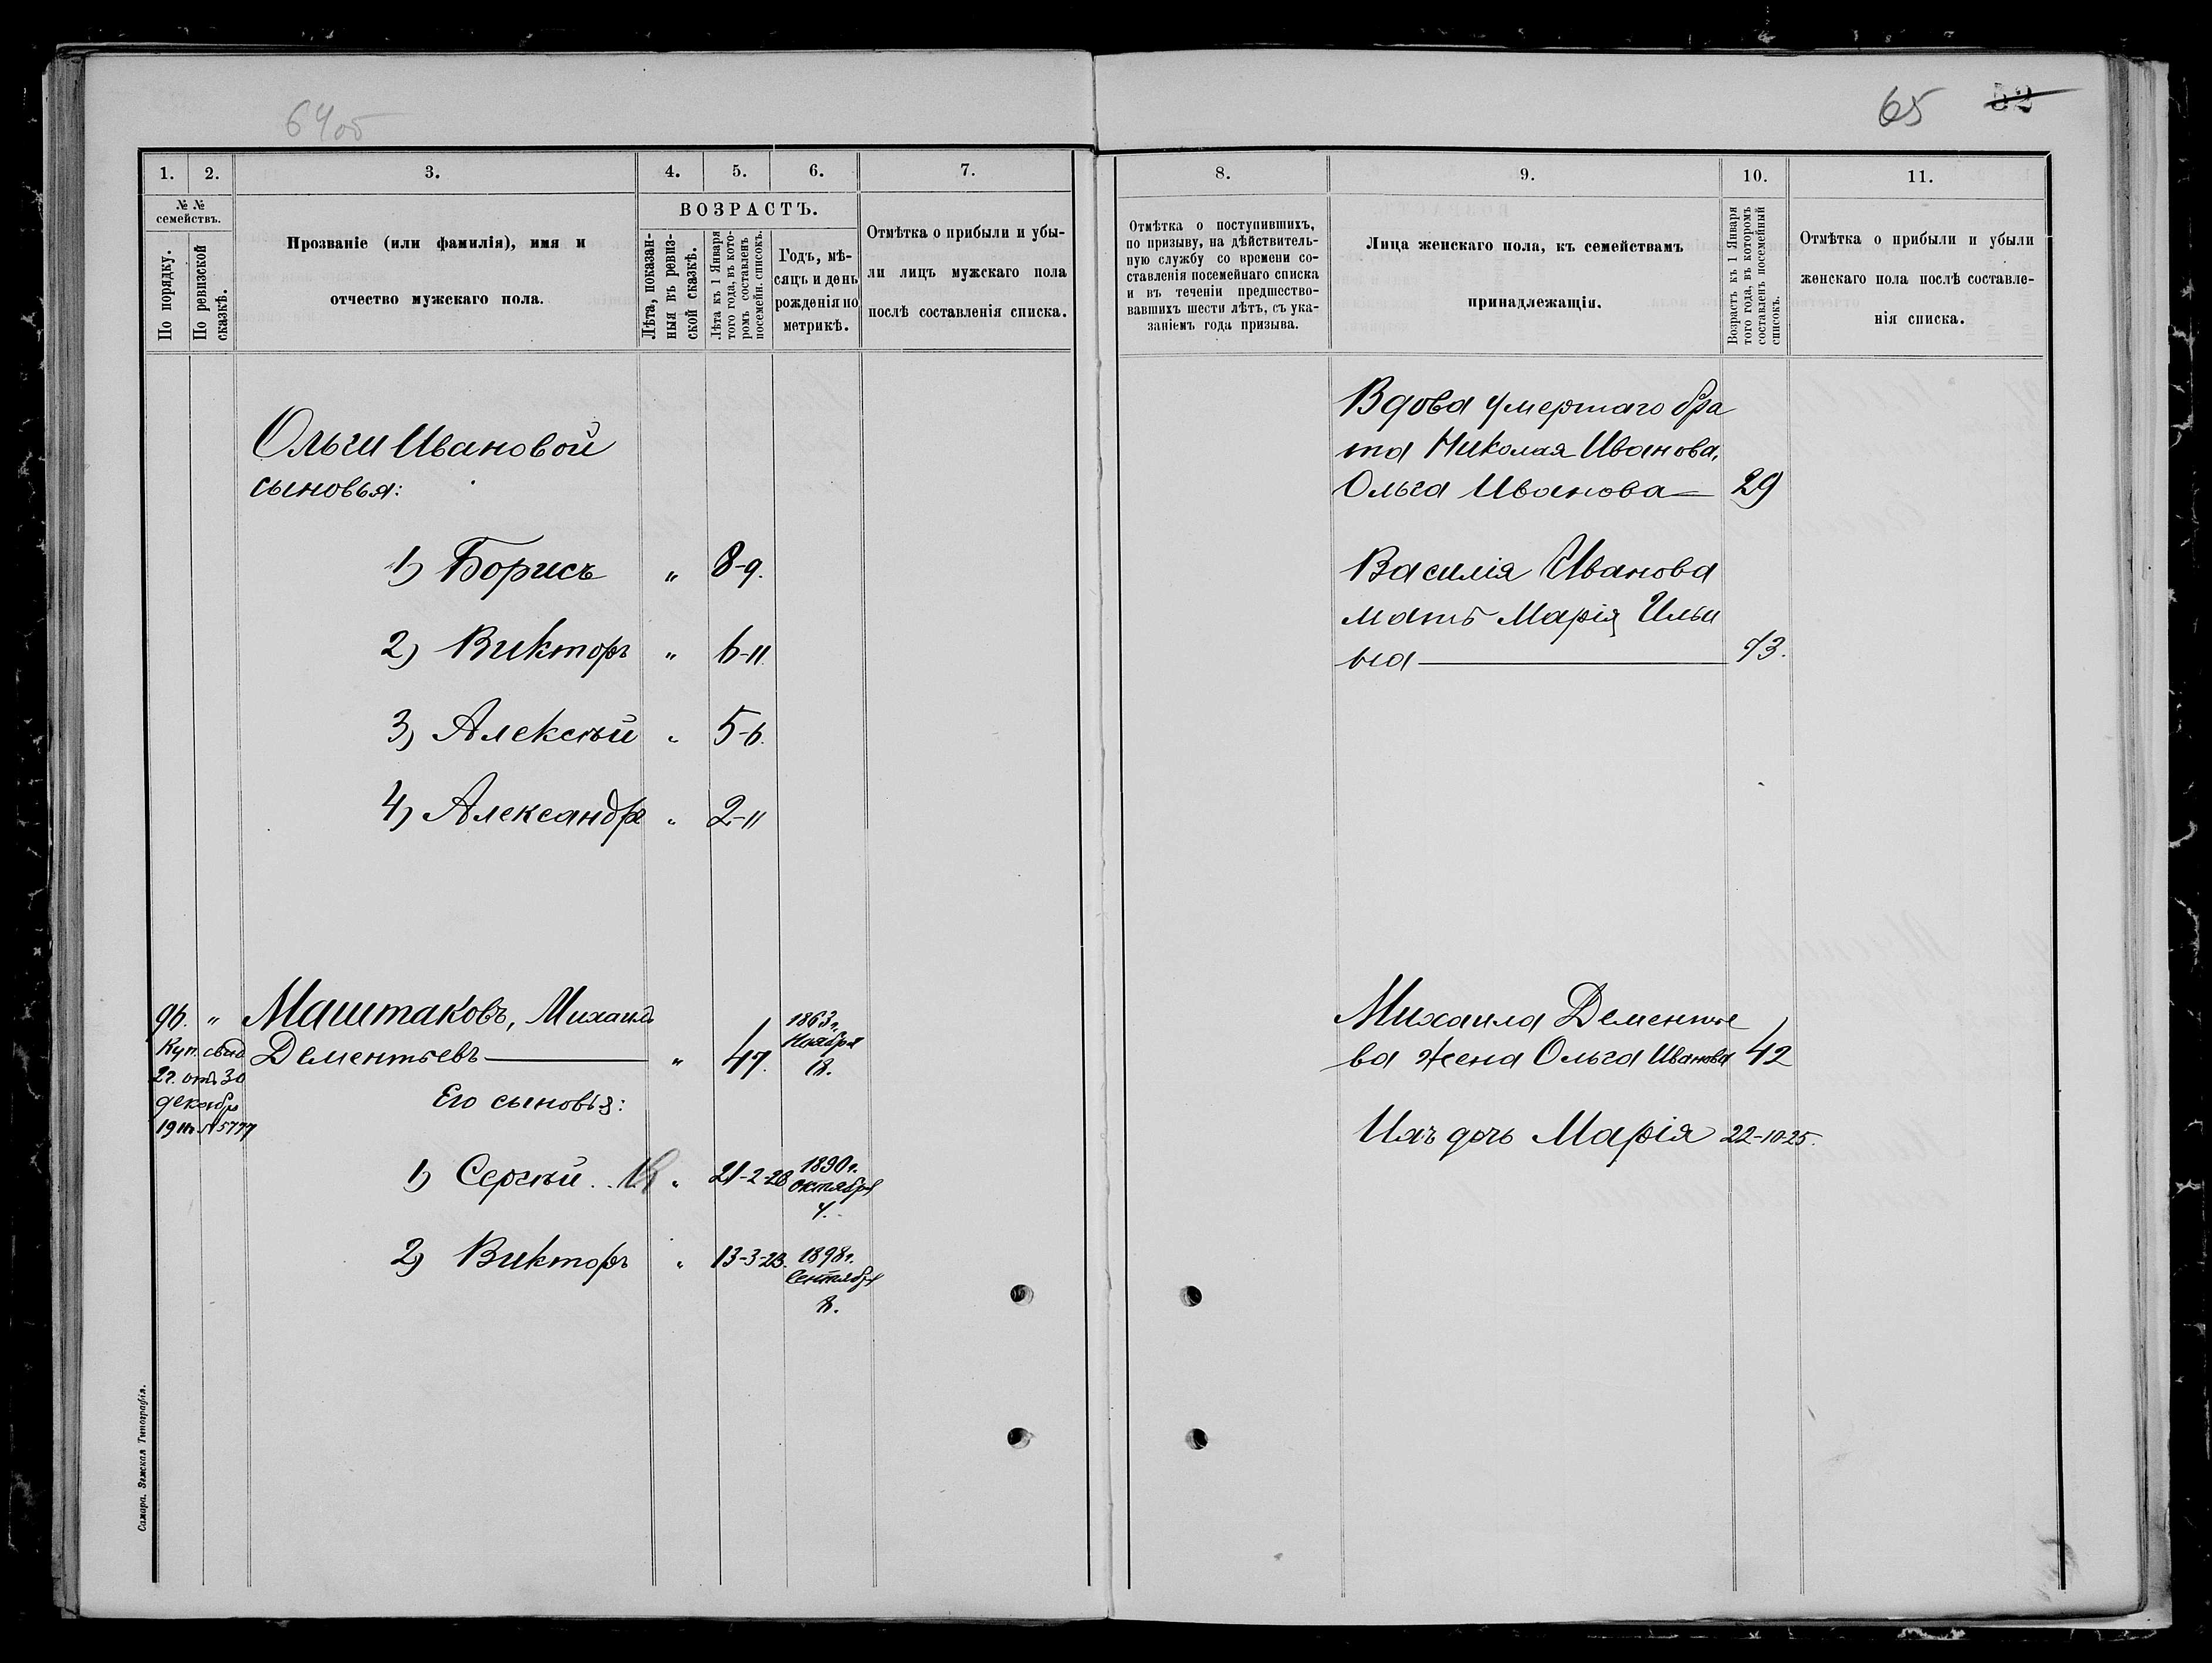 64об
65 52
1. 2. 3. 4. 5. 6. 7.
№ №
семействъ.
По порядку.
По ревизской
сказкѣ.
Прозваніе (или фамилія), имя и
отчество мужскаго пола.
ВОЗРАСТЪ.
Лѣта, показан-
ныя въ ревиз-
ской сказкѣ.
Лѣта къ 1 Января
того года, въ кото-
ромъ составленъ
посемейн. списокъ.
Годъ, мѣ-
сяцъ и день
рожденія по
метрикѣ.
Отмѣтка о прибыли и убы-
ли лицъ мужскаго пола
послѣ составленія списка.
Ольги Ивановой
сыновья:
1) Борисъ " 8-9.
2) Викторъ " 6-11.
3) Алексѣй " 5-6.
4) Александръ " 2-11
96. " Маштаковъ, Михаилъ
Дементьевъ — " 47.
1863 г.
Ноября
8.
Куп. свид
2 г. отъ 30
декабр
1911 г. № 5777
Его сыновья:
1) Сергѣй " 21-2-28
1890 г.
октября
4.
2) Викторъ " 13-3-23.
1898 г.
Сентября
8.
Самара. Земская Типографія.
8. 9. 10. 11.
Отмѣтка о поступившихъ,
по призыву, на дѣйствитель-
ную службу со времени со-
ставленія посемейнаго списка
и въ теченіи предшество-
вавшихъ шести лѣтъ, съ ука-
заніемъ года призыва.
Лица женскаго пола, къ семействамъ
принадлежащія.
Возрастъ къ 1 Января
того года, въ которомъ
составленъ посемейный
списокъ.
Отмѣтка о прибыли и убыли
женскаго пола послѣ составле-
нія списка.
Вдова умершаго бра
та Николая Иванова,
Ольга Иванова — 29
Василія Иванова
мать Марія Ильи
на — 73.
Михаила Дементье
ва жена Ольга Иванова 42
Ихъ дочь Марія 22-10-25.